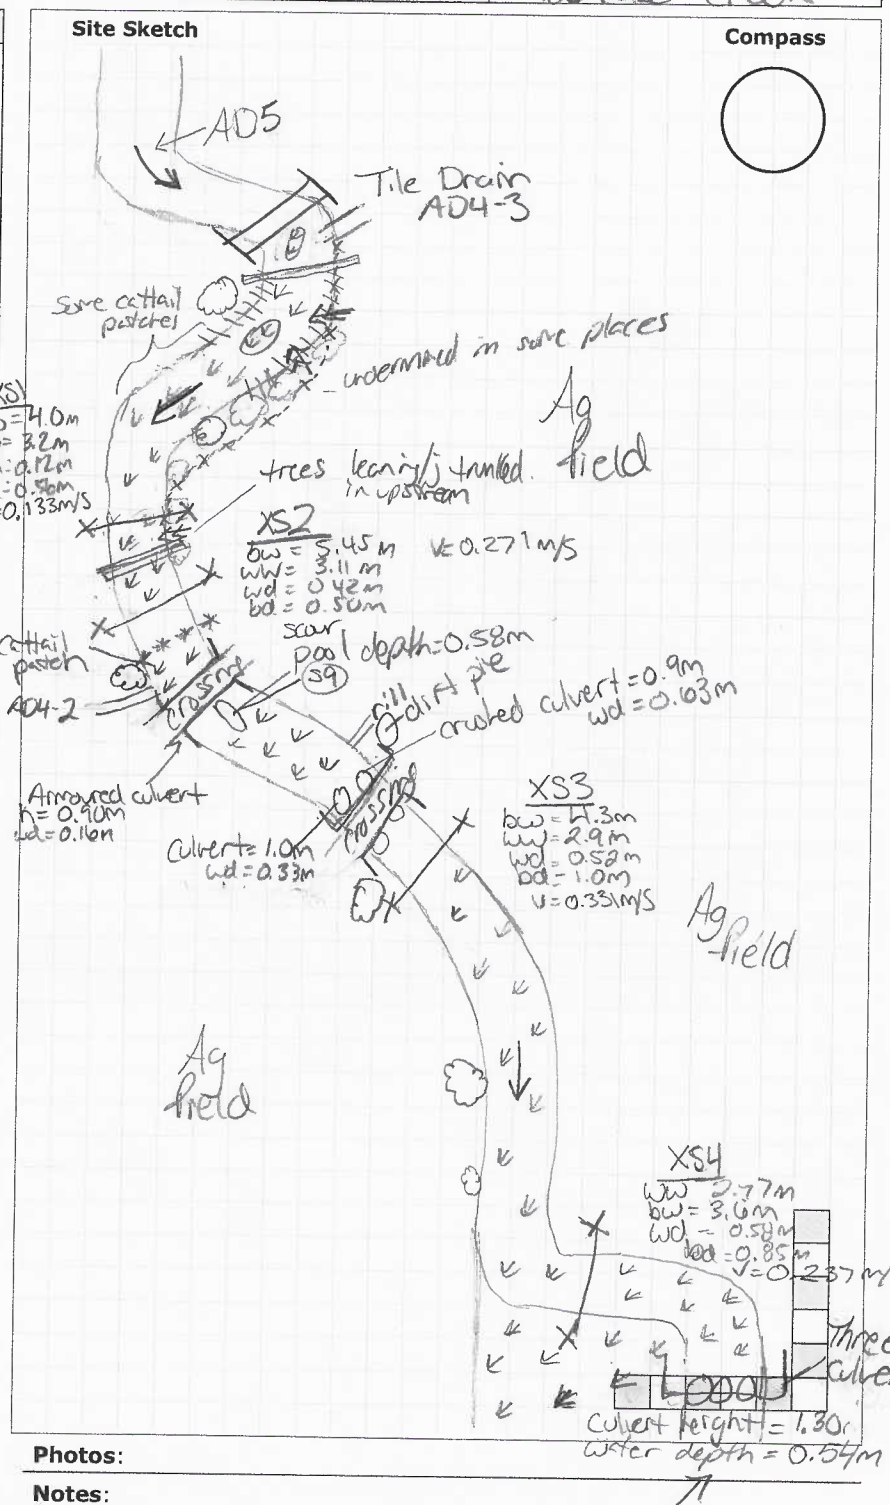 Site Sketch
Compass
AD5
Tile Drain
AD4-3
Some cattail
patches
undermined in some places
Ag
field
XS1
= 4.0m
= 3.2m
= 0.12m
= 0.56m
= 0.133m/s
trees leaning/j trunked
in upstream
XS2
bw = 5.45 m v = 0.271 m/s
ww = 3.11 m
wd = 0.42m
bd = 0.50m
scour
pool depth = 0.58m
59
Cattail
patch
AD4-2
crossing
rill
dirt pie
crushed culvert = 0.9m
wd = 0.63m
Armoured culvert
h = 0.90m
wd = 0.16m
crossing
culvert = 1.0m
wd = 0.33m
XS3
bw = 4.3m
ww = 2.9m
wd = 0.52m
bd = 1.0m
v = 0.331m/s
Ag
field
Ag
field
XS4
ww 2.77m
bw = 3.6m
wd = 0.58m
bd = 0.85m
v = 0.237 m/
Three
culver
culvert height = 1.30
water depth = 0.54m
Photos:
Notes: